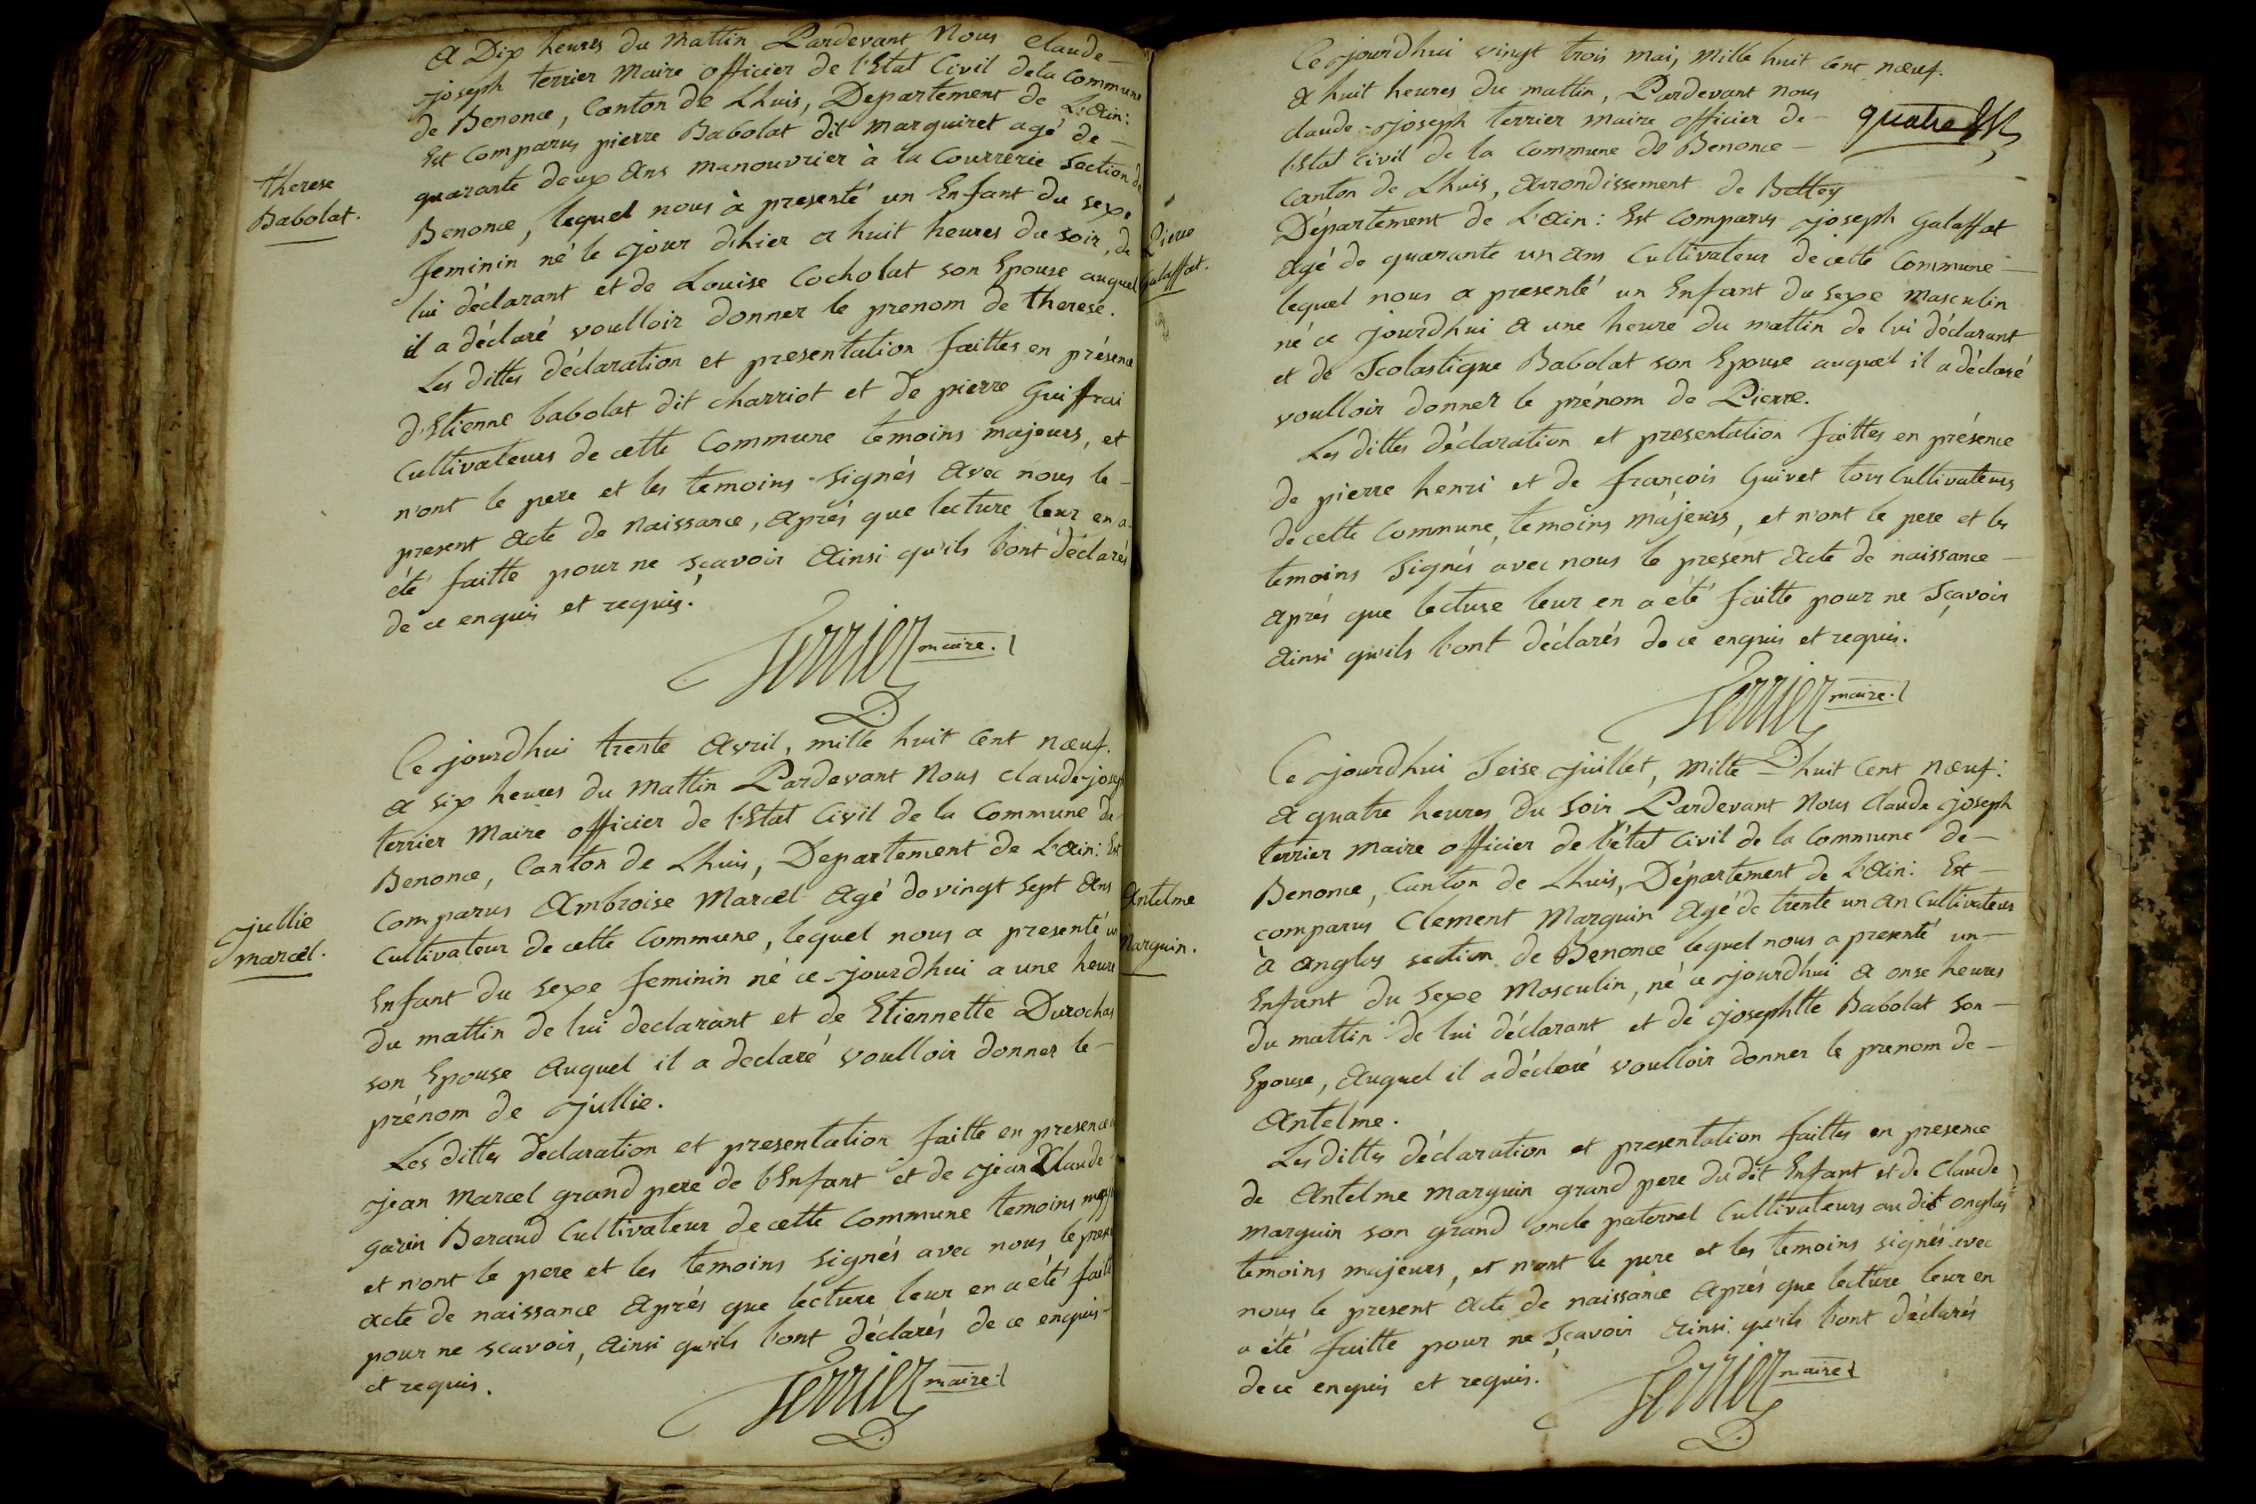 A Dix heures du mattin Pardevant Nous Claude
joseph terrier Maire officier de l'Etat Civil dela Commune
de Benonce, Canton de Lhuis, Departement de L'Ain:
Est Comparus pierre Babolat dit Marguiret agé de
quarante deux Ans manouvrier à la Courrerie Section de
Benonce, lequel nous à presenté un Enfant du sexe
feminin né le jour d'hier a huit heures du soir, de
lui déclarant et de Louise Cocholat son Epouse auquel
il a déclaré voulloir donner le prenom de therese.
Les dittes déclaration et presentation faittes en présence
d'Etienne babolat dit charriot et de pierre Guiffrai
Cultivateurs de cette Commune temoins majeurs, et
n'ont le pere et les temoins signés Avec nous le
present Acte de Naissance, après que lecture leur en a
été faitte pour ne sçavoir Ainsi qu'ils l'ont déclarés
de ce enquis et requis.
therese
Babolat.
Terrier maire.
Ce jourdhui trente Avril, mille huit Cent nœuf.
a six heures du Mattin Pardevant Nous Claude joseph
terrier Maire officier de l'Etat Civil de la Commune de
Benonce, Canton de Lhuis, Departement de L'Ain: Est
Comparus Ambroise Marcel Agé de vingt sept Ans
Cultivateur de cette Commune, lequel nous a presenté un
Enfant du sexe feminin né ce jourdhui a une heure
du mattin de lui declarant et de Etiennette Durochat
son Epouse Auquel il a declaré voulloir donner le
prénom de Jullie.
Les dittes declaration et presentation faitte en presence
jean Marcel grand pere de l'Enfant et de jean Claude
garin Beraud Cultivateur de cette Commune temoins
et n'ont le pere et les temoins signés avec nous le
acte de naissance Après que lecture leur en a été faitte
pour ne scavoir, Ainsi qu'ils l'ont déclarés de ce enquis
et requis.
Jullie
marcel.
Terrier maire.
Ce jourdhui vingt trois Mai, Mille huit Cent nœuf.
A huit heures du mattin, Pardevant nous
claude joseph terrier maire officier de
l'Etat Civil de la Commune de Benonce
Canton de Lhuis, Arrondissement de Belley
Département de L'Ain: Est Comparus joseph Galaffat
Agé de quarante un Ans Cultivateur de cette Commune
lequel nous a presenté un Enfant du sexe masculin
né ce jourdhui A une heure du mattin de lui déclarant
et de Scolastique Babolat son Epouse auquel il a déclaré
voulloir donner le prénom de Pierre.
Les dittes déclaration et presentation faittes en présence
de pierre henri et de françois Guivet tous Cultivateurs
de cette Commune, temoins majeurs, et n'ont le pere et les
temoins Signés avec nous le présent Acte de naissance
après que lecture leur en a été faitte pour ne Sçavoir
Ainsi qu'ils l'ont déclarés de ce enquis et requis.
quatre
Pierre
Galaffat.
Terrier maire.
Ce jourdhui Seise juillet, Mille huit Cent nœuf:
A quatre heures du Soir Pardevant Nous Claude joseph
terrier Maire officier de l'état Civil de la Commune de
Benonce, Canton de Lhuis, Département de L'Ain: Est
comparus Clement Marguin Agé de trente un An Cultivateur
à onglas section de Benonce lequel nous a presenté un
Enfant du Sexe Masculin, né ce jourdhui A onse heures
du mattin de lui déclarant et de josephtte Babolat son
Epouse, Auquel il a déclaré voulloir donner le prenom de
Antelme.
Les dittes déclaration et presentation faittes en presence
de Antelme marguin grand pere du dit Enfant et de Claude
marguin son grand oncle paternel Cultivateurs au dit onglas
temoins majeurs, et n'ont le pere et les temoins signés avec
nous le present Acte de naissance Après que lecture leur en
a été faitte pour ne Sçavoir Ainsi qu'ils l'ont déclarés
de ce enquis et requis.
Antelme
Marguin.
Terrier maire